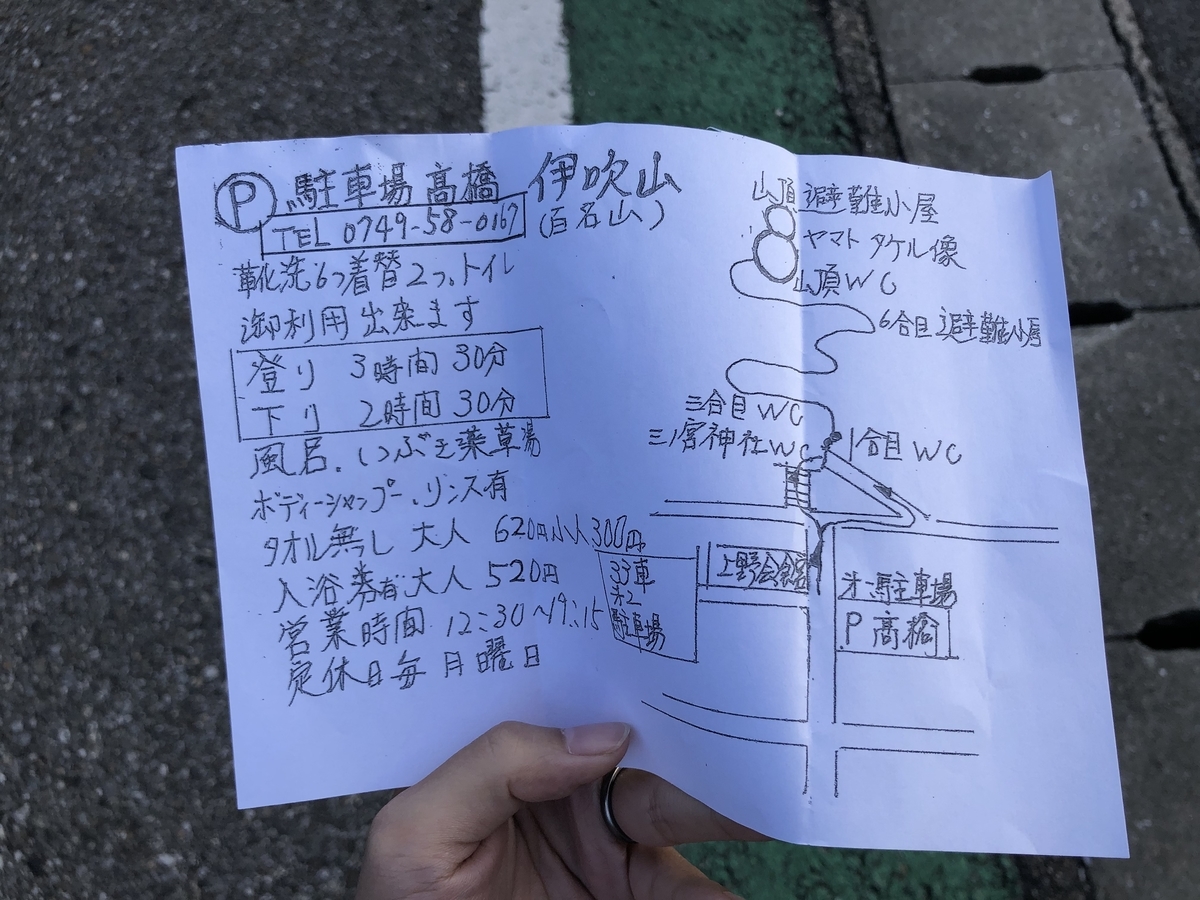 P 駐車場 高橋 伊吹山
TEL 0749-58-0167 (百名山)
靴洗6つ着替2つ、トイレ
御利用出来ます
登り 3時間30分
下り 2時間30分
風呂、いぶき薬草湯
ボディーシャンプー、リンス有
タオル無し 大人 620円小人300円
入浴券有、大人 520円
営業時間 12:30〜19:15
定休日毎月曜日
山頂避難小屋
ヤマトタケル像
山頂WC
6合目避難小屋
三合目WC
三ノ宮神社WC
1合目WC
上野会館
33車
才2
駐車場
才1駐車場
P高橋